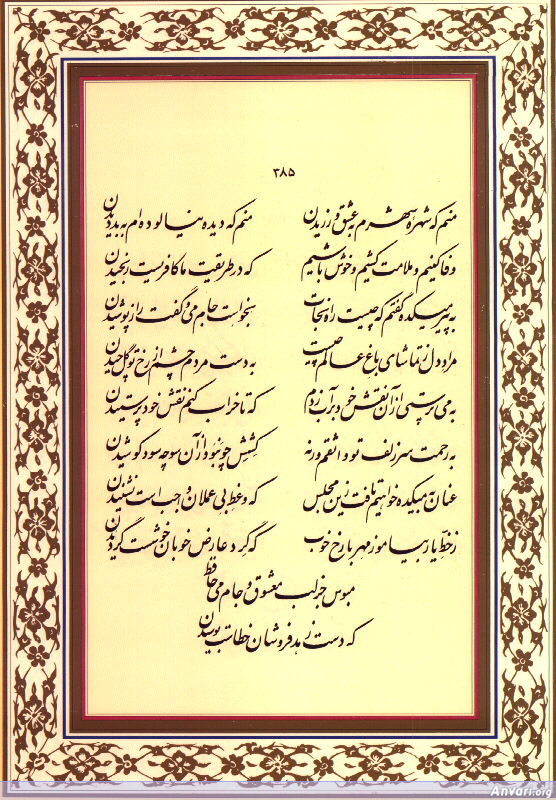 ۳۸۵
منم که شهره شهرم به عشق ورزیدن منم که دیده نیالوده‌ام به بد دیدن
وفا کنیم و ملامت کشیم و خوش باشیم که در طریقت ما کافریست رنجیدن
به پیر میکده گفتم که چیست راه نجات بخواست جام می و گفت راز پوشیدن
مراد دل ز تماشای باغ عالم چیست به دست مردم چشم از رخ تو گل چیدن
به می پرستی از آن نقش خود بر آب زدم که تا خراب کنم نقش خود پرستیدن
به رحمت سر زلف تو واثقم ورنه کشش چو نبود از آن سو چه سود کوشیدن
عنان به میکده خواهیم تافت زین مجلس که وعظ بی عملان واجب است نشنیدن
ز خطّ یار بیاموز مهر با رخ خوب که گرد عارض خوبان خوشست گردیدن
مبوس جز لب معشوق و جام می حافظ
که دست زهد فروشان خطاست بوسیدن
Anvari.org